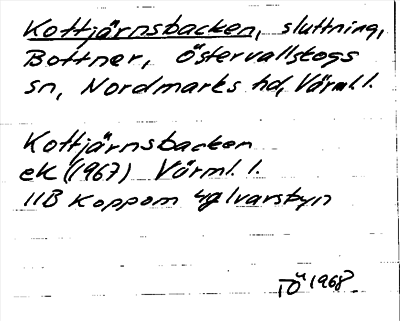 Kottjärnsbacken, sluttning,
Bottnar, Östervallskogs
sn, Nordmarks hd, Värml. l.
Kottjärnsbacken
ek (1967) Värml. l.
11B Koppom 4g Ivarsbyn
TÖ 1968